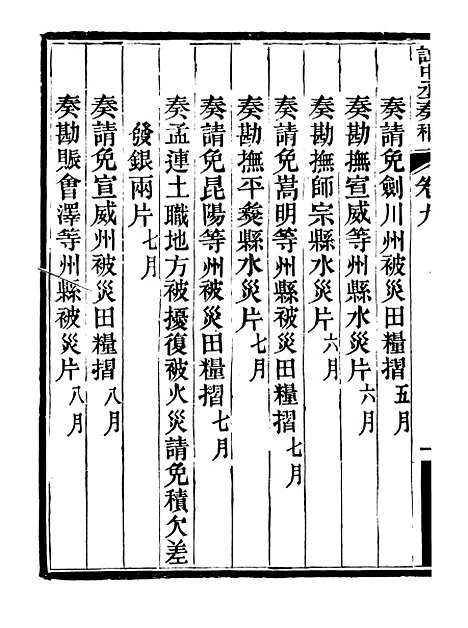 卷九
奏請免劍川州被災田糧摺五月
奏勘撫宣威等州縣水災片六月
奏勘撫師宗縣水災片六月
奏請免嵩明等州縣被災田糧摺七月
奏勘撫平彝縣水災片七月
奏請免昆陽等州被災田糧摺七月
奏孟連土職地方被擾復被火災請免積欠差
發銀兩片七月
奏請免宣威州被災田糧摺八月
奏勘賑會澤等州縣被災片八月